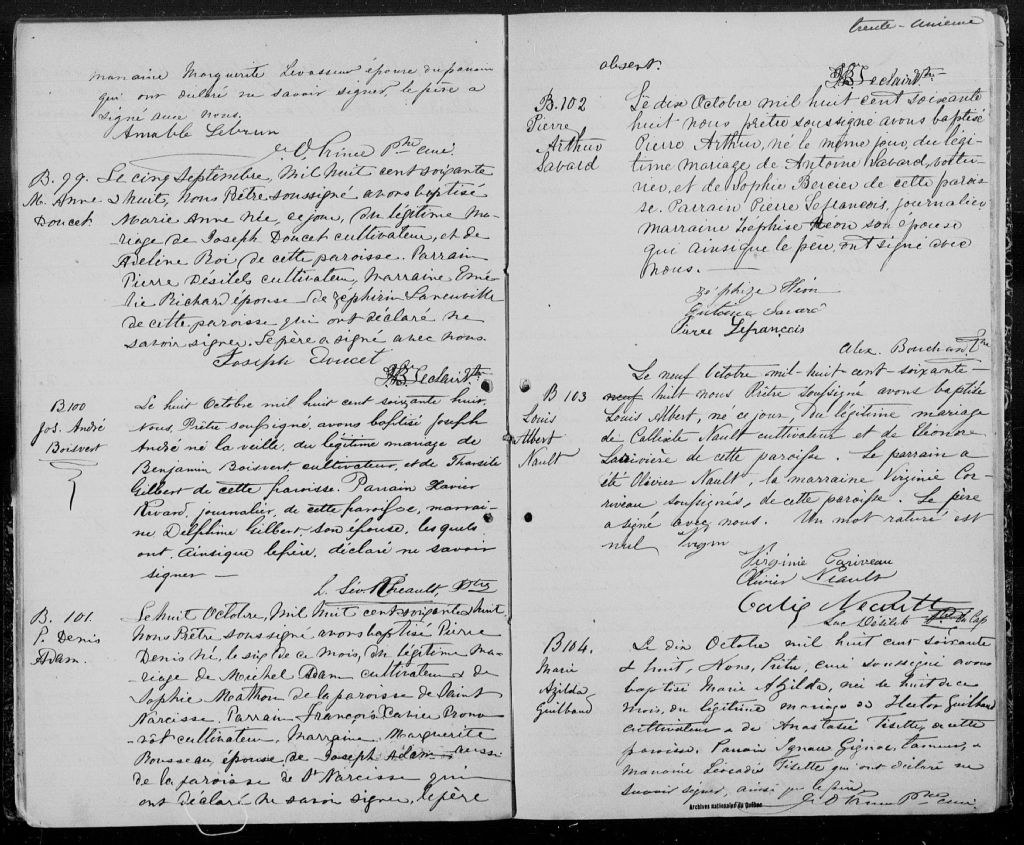 marraine Marguerite Levasseur épouse du parrain
qui ont déclaré ne savoir signer, le père a
signé avec nous.
Amable Lebrun
J. O. Prince Ptre curé
B. 99.
M. Anne
Doucet
Le cinq Septembre, mil huit cent soixante
& huit, Nous Prêtre soussigné avons baptisé
Marie Anne née, ce jour, du légitime ma-
riage de Joseph Doucet cultivateur, et de
Adeline Roi de cette paroisse. Parrain
Pierre Désilets cultivateur, Marraine, Emé-
lie Richard épouse de Zephirin Laneuville
de cette paroisse qui ont déclaré ne
savoir signer. Le père a signé avec nous.
Joseph Doucet
Leclair Ptre
B 100
Jos. André
Boisvert
Le huit Octobre mil huit cent soixante huit,
Nous, Prêtre soussigné, avons baptisé Joseph
André né la veille, du légitime mariage de
Benjamin Boisvert, cultivateur, et de Tharsile
Gilbert de cette paroisse. Parrain Xavier
Rivard, journalier, de cette paroisse, marrai-
ne Delphine Gilbert, son épouse, lesquels
ont, ainsi que le père, déclaré ne savoir
signer —
L. Sév. Rheault, Ptre
B. 101.
P. Denis
Adam.
Le huit Octobre, Mil huit cent soixante & huit,
Nous Prêtre soussigné avons baptisé Pierre
Denis né, le six de ce mois, du légitime ma-
riage de Michel Adam cultivateur & de
Sophie Mathon de la paroisse de Saint
Narcisse. Parrain François Xavier Prono-
vôt cultivateur, Marraine Marguerite
Rousseau, épouse de Joseph Adam aussi
de la paroisse de St Narcisse qui
ont déclaré ne savoir signer, le père
trente-unième
absent.
Leclair Ptre
B. 102
Pierre
Arthur
Savard
Le dix Octobre mil huit cent soixante
huit nous prêtre soussigné avons baptisé
Pierre Arthur, né le même jour, du légi-
time mariage de Antoine Savard, voitu-
rier, et de Sophie Bercier de cette parois-
se. Parrain Pierre Lefrancois, journalier
marraine Zéphise Héon son épouse
qui ainsi que le père, ont signé avec
nous. —
Zéphize Héon
Antoine Savard
Pierre Lefrançois
Alex. Bouchard Ptre
B 103
Louis
Albert
Nault
Le neuf Octobre mil-huit-cent-soixante-
neuf huit nous Prêtre soussigné avons baptisé
Louis Albert, né ce jour du légitime mariage
de Callixte Nault cultivateur et de Eléonore
Larivière de cette paroisse. Le parrain a
été Olivier Nault, la marraine Virginie Cor-
riveau soussignés, de cette paroisse. Le père
a signé avec nous. Un mot raturé est
nul
Virginie Coriveau
Olivier Neault
Calix Neault
Luc Désilets Ptre du Cap
B 104.
Marie
Azilda
Guilbaud
Le dix Octobre mil huit cent soixante
& huit, Nous, Prêtre, curé soussigné avons
baptisé Marie Azilda, née le huit de ce
mois, du légitime mariage de Hector Guilbaud
cultivateur & de Anastasie Tisette, de cette
paroisse. Parrain Ignace Gignac, tanneur, &
marraine Léocadie Tisette qui ont déclaré ne
savoir signer, ainsi que le père
J. O. Prince Ptre curé
Archives nationales du Québec